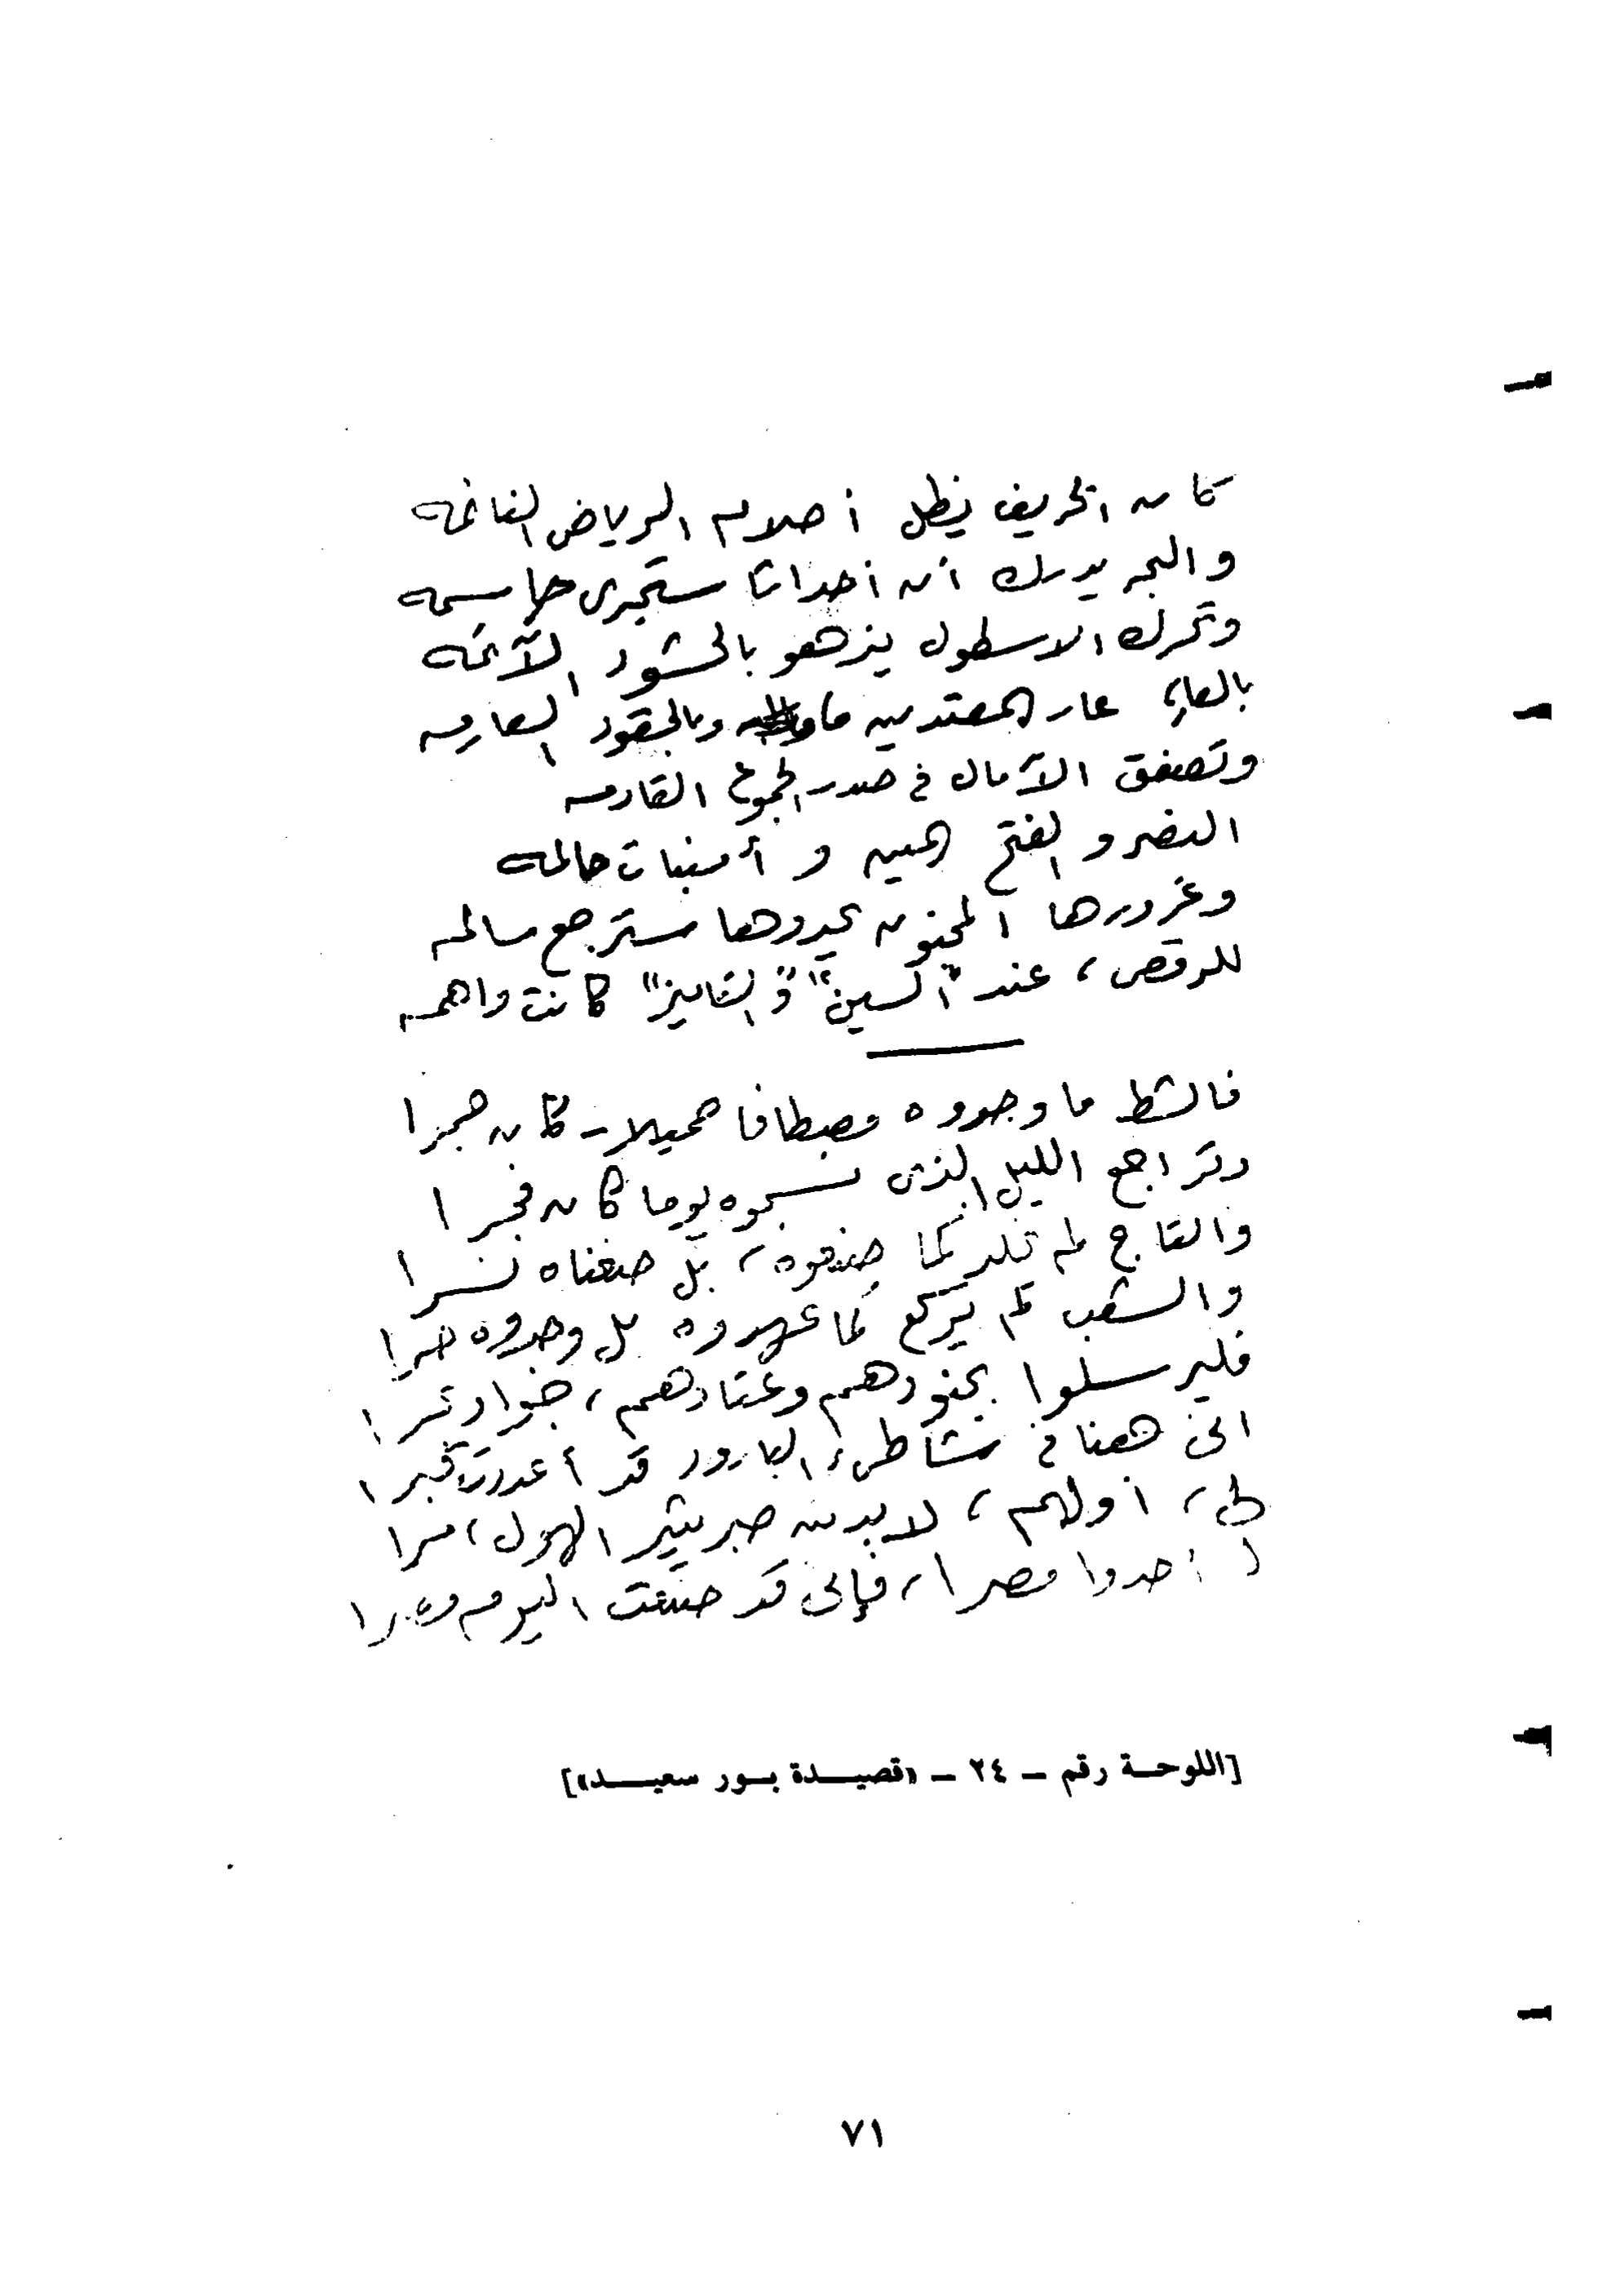 كان الخريف يظل أحلام الرياض الناغمه
والبحر يدرك أن أحداثا ستجرى حاسمه
وتحرك الاسطول يزهو بالحشود الآثمه
بالعار عار المعتدين وبالحقود العارمه
وتصفق الآمال فى صدر الجموع القادمه
النصر والفتح المبين وأمنيات حالمه
وغرورها المجنون يحدوها سترجع سالمه
للرقص، عند "السين" و"التايمز" كانت واهمه
فالشط ما وجدوه مصطافا جميلا - كان جمرا
وتراجع الليل الذى نسجوه يوما كان فجرا
والتاج لم تلد كما صنعوه، بل صنعناه نسرا
والشعب لم يركع كما عهدوه بل وجدوه حرا
فليرسلوا بجنودهم وعتادهم،
انى هنا فى شاطىء البارود قد أعددت قبرا
أولهم، لابد من صبر يثير الهول،
مصرا، فإنى قد صنعت اليوم
[اللوحة رقم - ٢٤ - «قصيدة بور سعيد»]
٧١